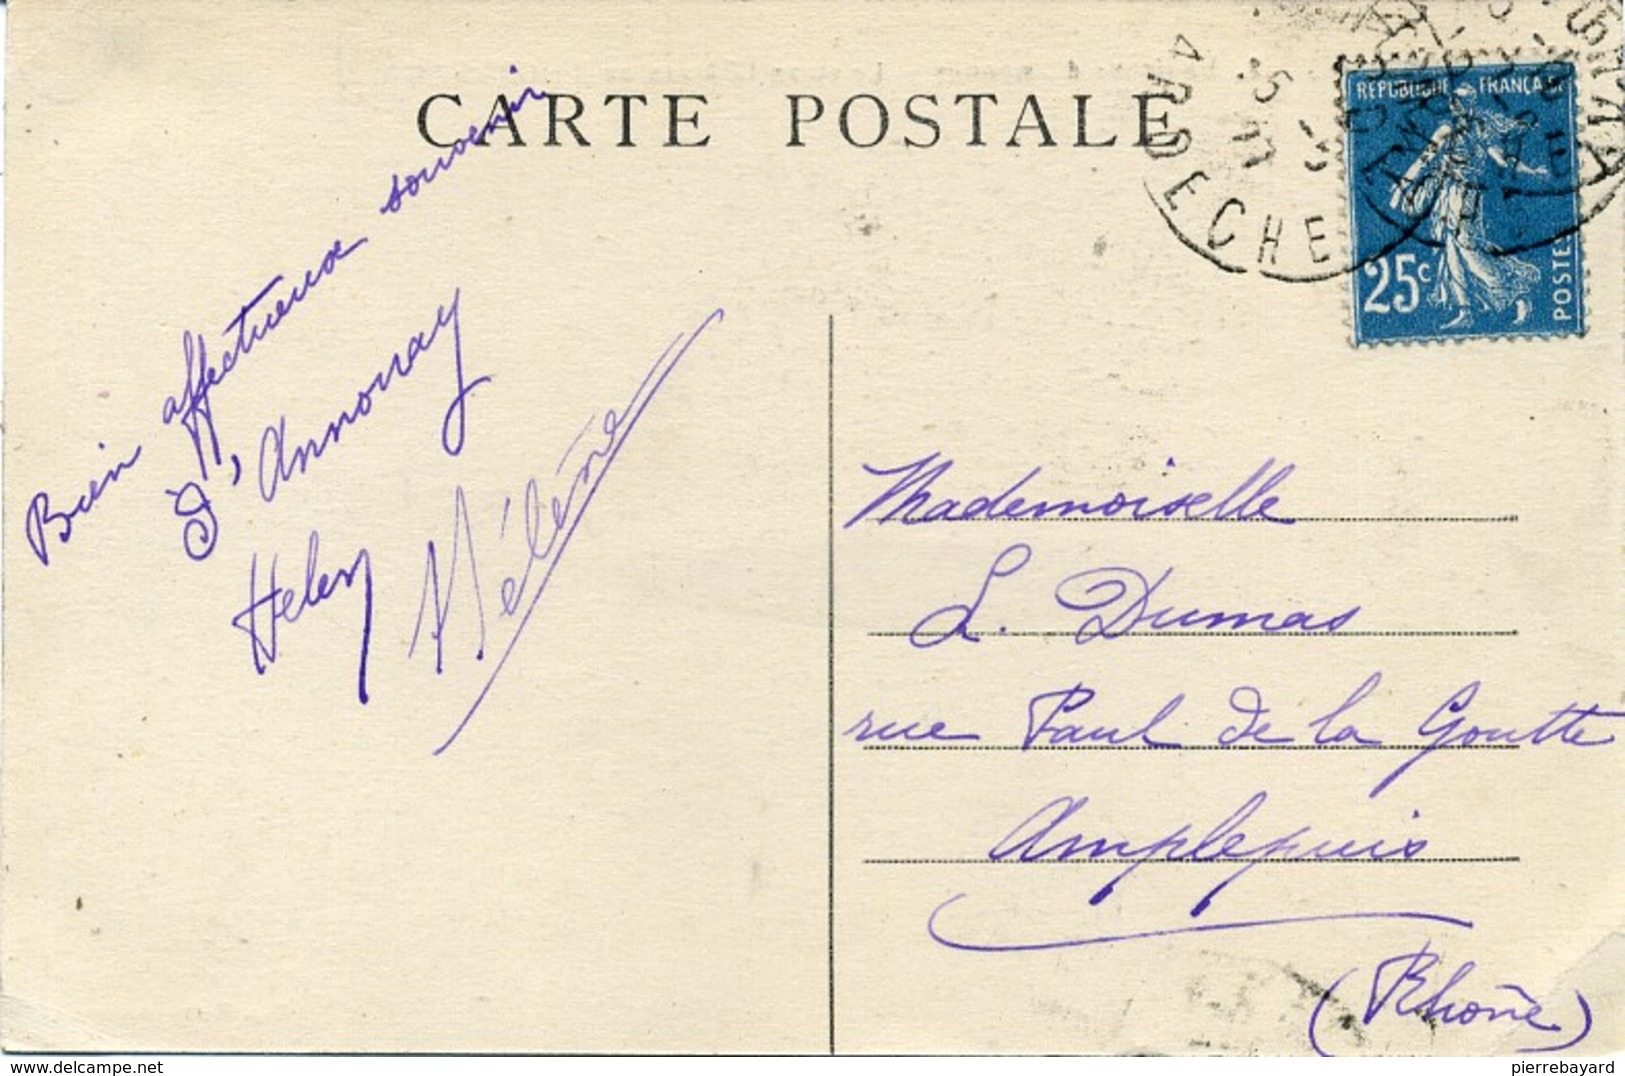 CARTE POSTALE
Bien affectueux souvenir
d'Annonay
Heleny Hélène
ARDECHE
REPUBLIQUE FRANÇAISE
25c
POSTES
Mademoiselle
L. Dumas
rue Paul de la Goutte
Amplepuis
(Rhône)
www.delcampe.net
pierrebayard